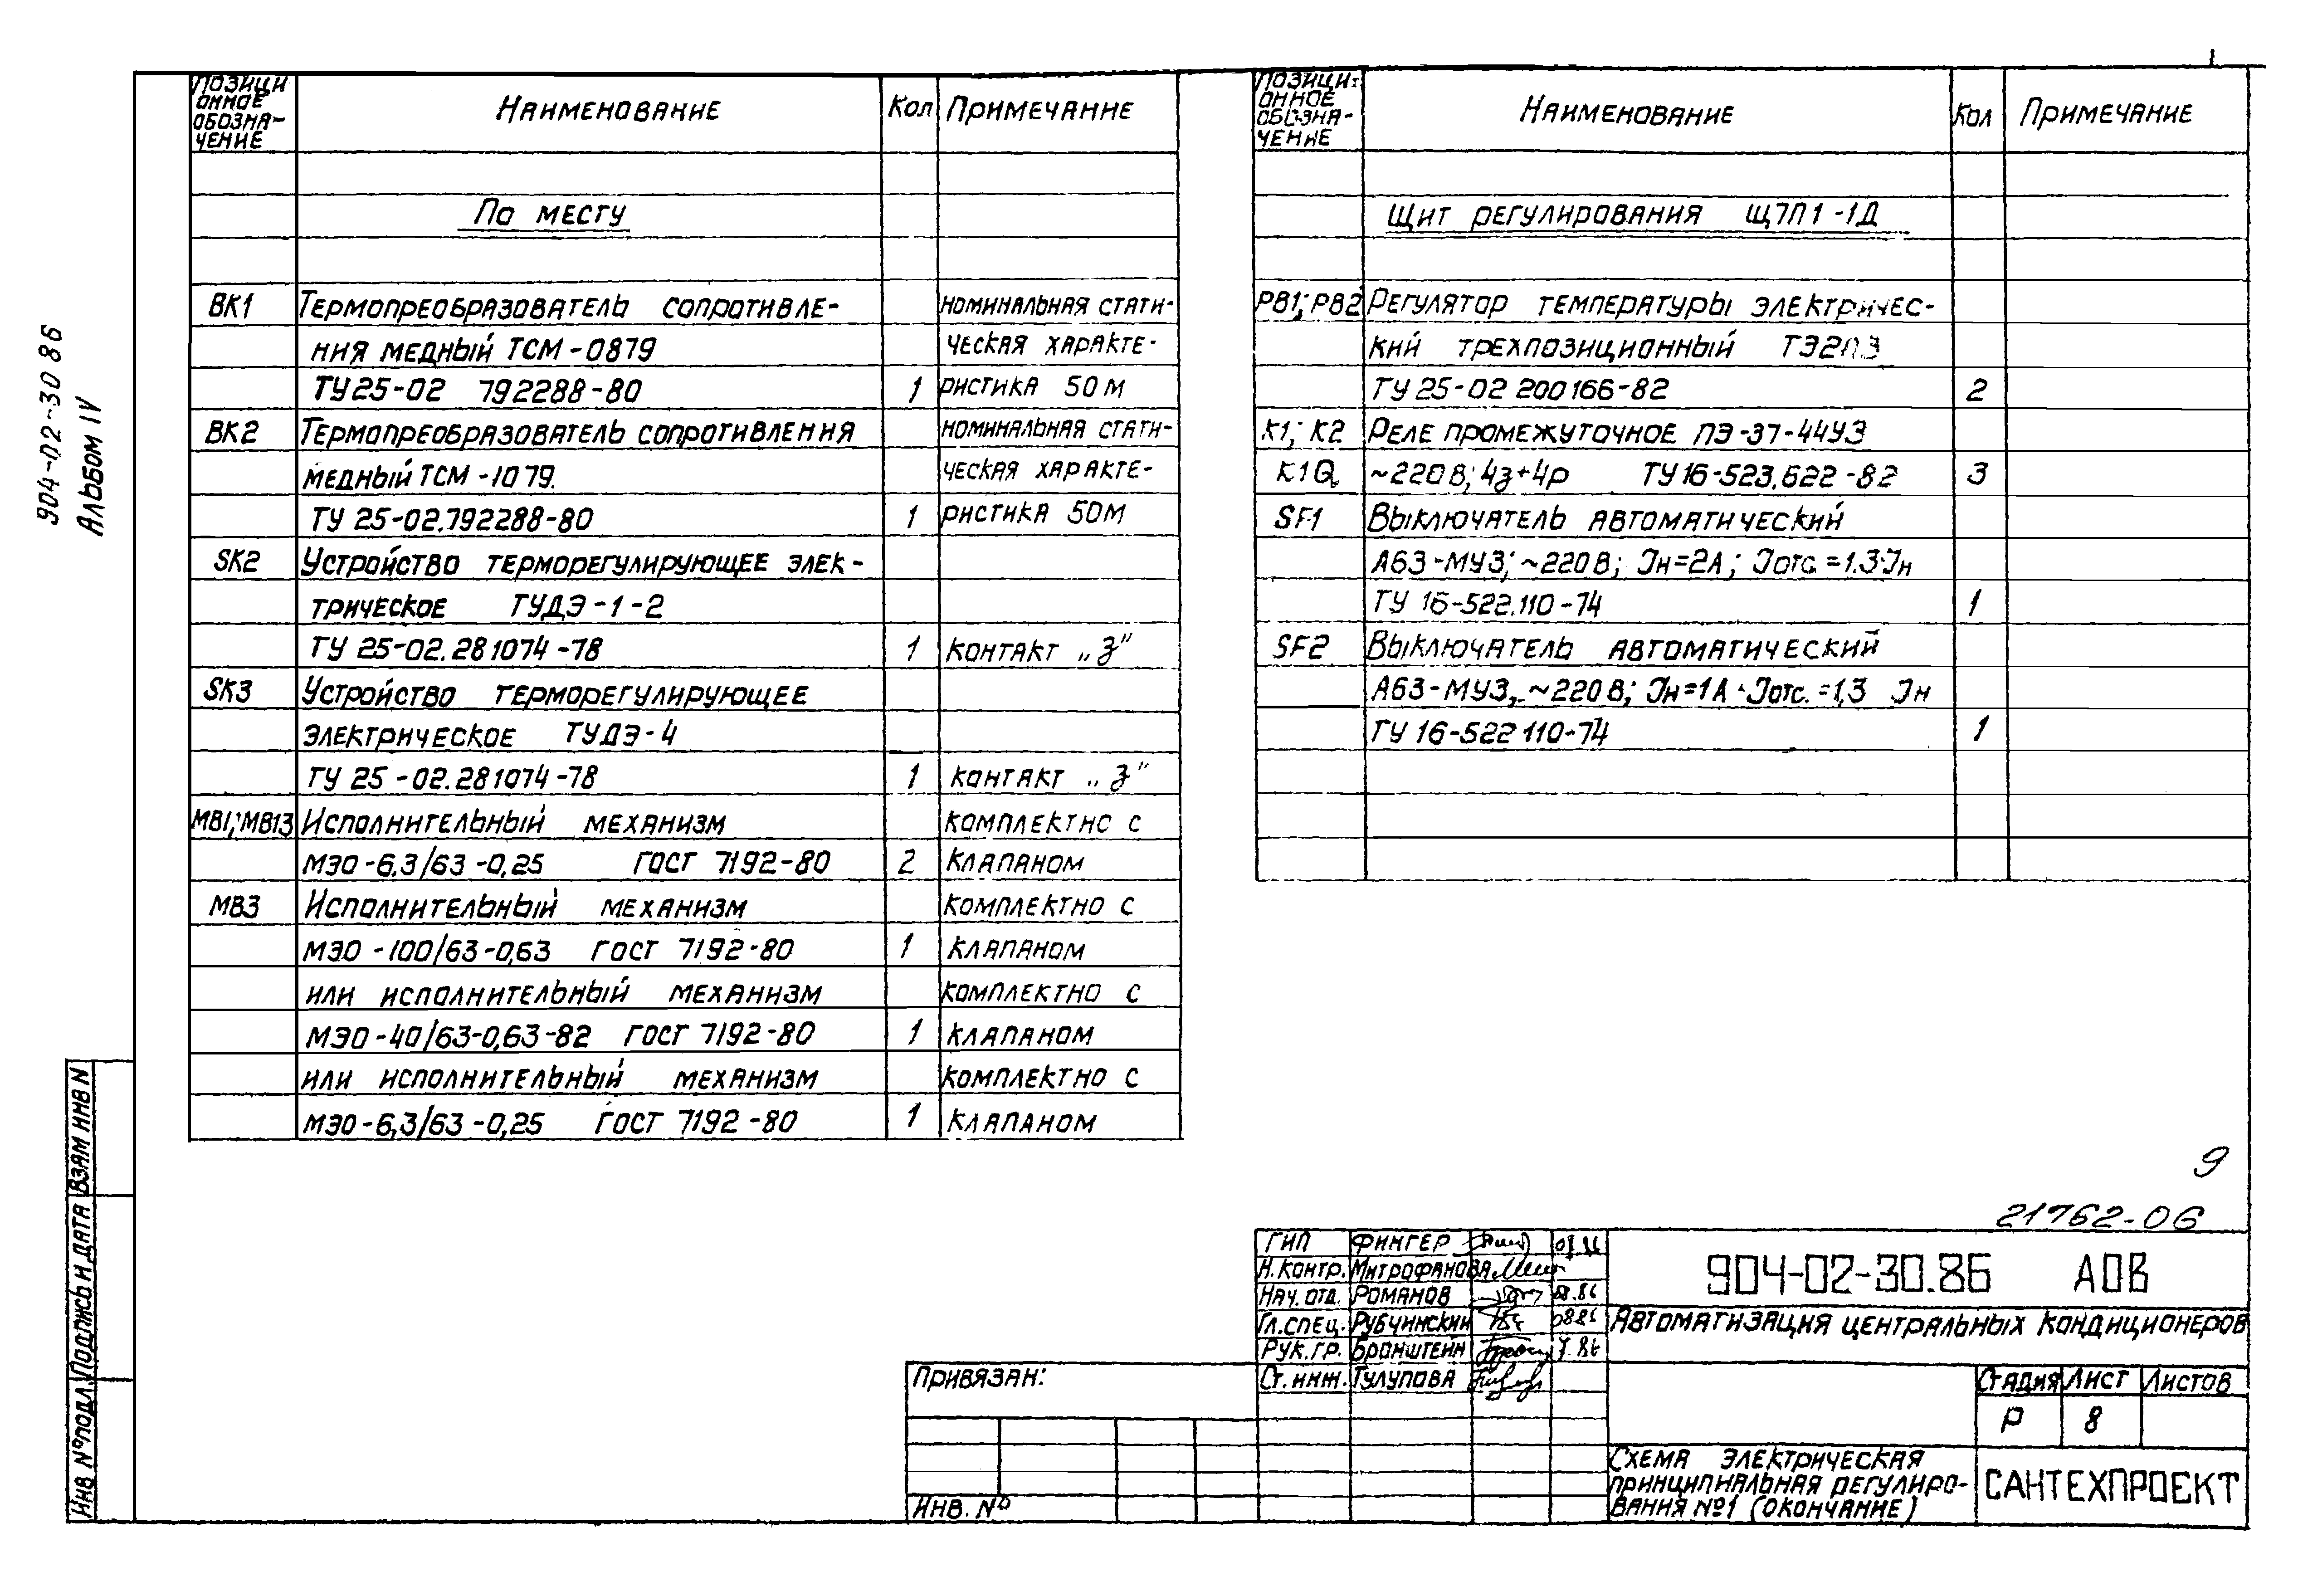 904-02-30 86
Альбом IV
Позици
онное
обозна-
чение
Наименование
Кол
Примечание
По месту
ВК1 Термопреобразователь сопротивле- номинальная стати-
ния медный ТСМ-0879 ческая характе-
ТУ25-02 792288-80 1 ристика 50 м
ВК2 Термопреобразователь сопротивления номинальная стати-
медный ТСМ-1079. ческая характе-
ТУ 25-02.792288-80 1 ристика 50м
SK2 Устройство терморегулирующее элек-
трическое ТУДЭ-1-2
ТУ 25-02.281074-78 1 контакт „з"
SK3 Устройство терморегулирующее
электрическое ТУДЭ-4
ТУ 25-02.281074-78 1 контакт „з"
МВ1;МВ13 Исполнительный механизм комплектно с
МЭО-6,3/63-0,25 ГОСТ 7192-80 2 клапаном
МВ3 Исполнительный механизм комплектно с
МЭО-100/63-0,63 ГОСТ 7192-80 1 клапаном
или исполнительный механизм комплектно с
МЭО-40/63-0,63-82 ГОСТ 7192-80 1 клапаном
или исполнительный механизм комплектно с
МЭО-6,3/63-0,25 ГОСТ 7192-80 1 клапаном
Позици-
онное
обозна-
чение
Наименование
Кол
Примечание
Щит регулирования Щ7П1-1Д
РВ1; РВ2 Регулятор температуры электричес-
кий трехпозиционный ТЭ2П3
ТУ 25-02 200166-82 2
К1; К2 Реле промежуточное ПЭ-37-44У3
К1Q ~220В; 4з+4р ТУ16-523.622-82 3
SF1 Выключатель автоматический
А63-МУ3; ~220В; Iн=2А; Iотс.=1.3·Iн
ТУ 16-522.110-74 1
SF2 Выключатель автоматический
А63-МУ3, ~220В; Iн=1А Iотс.=1,3 Iн
ТУ 16-522 110-74 1
9
21762-06
ГИП Фингер
Н.контр. Митрофанова
Нач. отд. Романов 08.86
Гл.спец. Рубчинский 0886
Рук.гр. Бронштейн
Ст. инж. Тулупова
904-02-30.86 АОВ
Автоматизация центральных кондиционеров
Стадия Лист Листов
Р 8
Схема электрическая
принципиальная регулиро-
вания №1 (окончание)
САНТЕХПРОЕКТ
Привязан:
Инв. №
Взам инв N
Подпись и дата
Инв №подл.